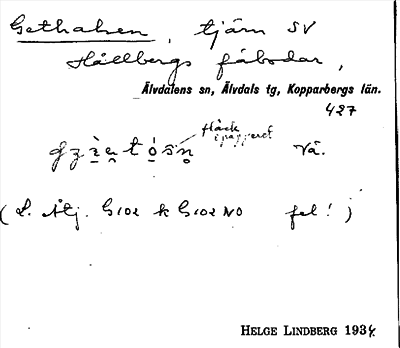 Gethalsen, tjärn SV
Hållbergs fäbodar,
Älvdalens sn, Älvdals tg, Kopparbergs län.
427
fläck
i papperet
Vå.
(L. Ålj. G102 k G102 NO fel!)
HELGE LINDBERG 1934.